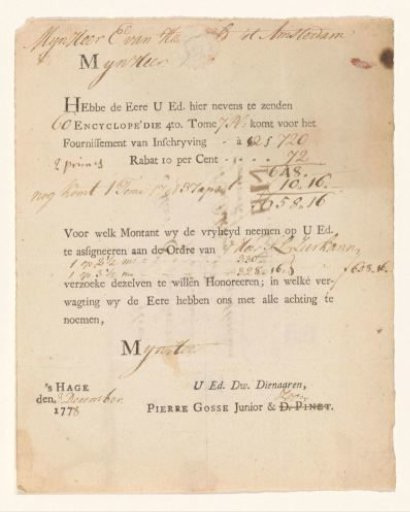 Myn Heer E van Ha t Amsterdam
MYnHeer
HEbbe de Eere U Ed. hier nevens te zenden
60 ENCYCLOPE'DIE 4to. Tome 7 komt voor het
Fournissement van Inschryving - à 720
2 primes Rabat 10 per Cent - - - 72
648.
nog komt 1 Tome 10.16.
658.16
Voor welk Montant wy de vryheyd neemen op U Ed.
te assigneeren aan de Ordre van
verzoeke dezelven te willen Honoreeren; in welke ver-
wagting wy de Eere hebben ons met alle achting te
noemen,
MYnHeer
'sHAGE U Ed. Dw. Dienaaren,
den 3 December
1778 PIERRE GOSSE Junior & D. PINET.